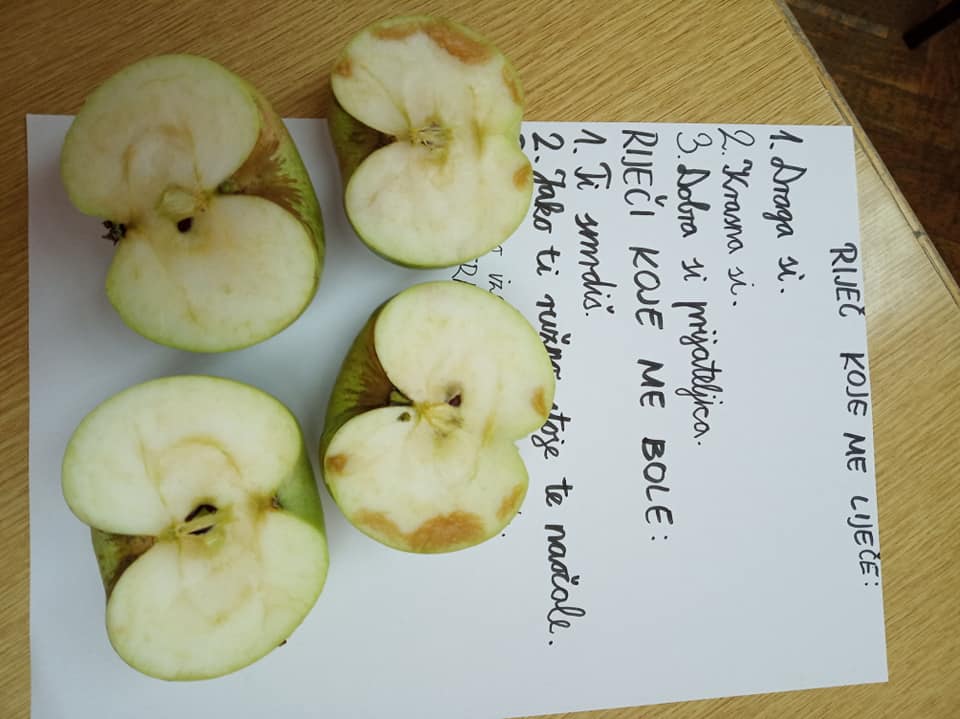 RIJEČ KOJE ME LIJEČE:
1. Draga si.
2. Krasna si.
3. Dobra si prijateljica.
RIJEČI KOJE ME BOLE:
1. Ti smrdiš.
2. Jako ti ružno stoje te naočale.